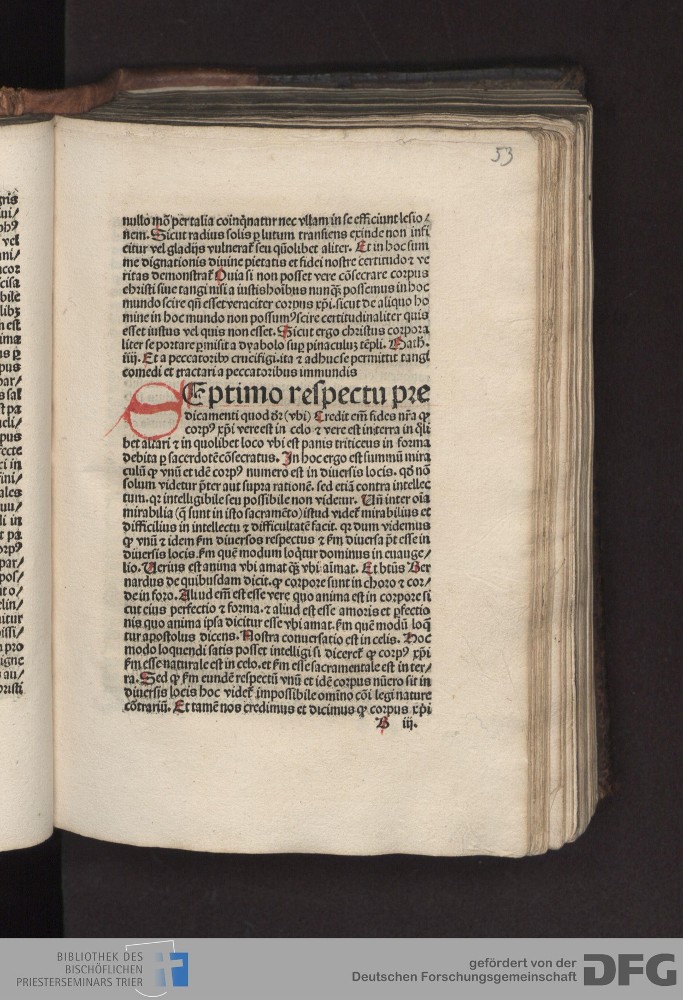 53
nullo mō per talia coinq̄natur nec vllam in se efficiunt lesio/
nem. Sicut radius solis ꝑ lutum transiens exinde non infi
citur vel gladijs vulneraꝉ seu qūolibet aliter. Et in hoc sum
me dignationis diuine pietatis et fidei nostre certitudo ⁊ ve
ritas demonstraꝉ Quia si non posset vere cōsecrare corpus
christi siue tangi nisi a iustis hoībus nunqꝫ possemus in hoc
mundo scire qn̄ esset veraciter corpus xp̄i. sicut de aliquo ho
mine in hoc mundo non possumꝰ scire certitudinaliter quis
esset iustus vel quis non esset. Sicut ergo christus corpora
liter se portare ꝑmisit a dyabolo suꝑ pinaculuꝫ tēpli. Math.
iiij. Et a peccatoribꝰ crucifigi. ita ⁊ adhuc se permittit tangi
comedi et tractari a peccatoribus immundis
SEptimo respectu pre
dicamenti quod dr̄ (vbi) Credit em̄ fides nr̄a ꝙ
corpꝰ xp̄i vere est in celo ⁊ vere est in terra in q̄li
bet altari ⁊ in quolibet loco vbi est panis triticeus in forma
debita ꝑ sacerdotē cōsecratus. In hoc ergo est summū mira
culū ꝙ vnū et idē corpꝰ numero est in diuersis locis. qd̄ nō
solum videtur p̄ter aut supra rationē. sed etiā contra intellec
tum. qꝛ intelligibile seu possibile non videtur. Vn̄ inter oīa
mirabilia (q̄ sunt in isto sacramēto) istud videꝉ mirabilius et
difficilius in intellectu ⁊ difficultatē facit. qꝛ dum videmus
ꝙ vnū ⁊ idem ẜm diuersos respectus ⁊ ẜm diuersa p̄t esse in
diuersis locis. ẜm quē modum loq̄tur dominus in euange/
lio. Verius est anima vbi amat qꝫ vbi aīmat. Et btūs Ber
nardus de quibusdam dicit. ꝙ corpore sunt in choro ⁊ cor/
de in foro. Aliud em̄ est esse vere quo anima est in corpore si
cut eius perfectio ⁊ forma. ⁊ aliud est esse amoris et ꝑfectio
nis quo anima ipsa dicitur esse vbi amat. ẜm quē modū loq̄
tur apostolus dicens. Nostra conuersatio est in celis. Hoc
modo loquendi satis posset intelligi si dicereꝉ ꝙ corpꝰ xp̄i
ẜm esse naturale est in celo. et ẜm esse sacramentale est in ter/
ra. Sed ꝙ ẜm eundē respectū vnū et idē corpus nūero sit in
diuersis locis hoc videꝉ impossibile omīno cōi legi nature
cōtrariū. Et tamē nos credimus et dicimus ꝙ corpus xp̄i
B iij.
BIBLIOTHEK DES
BISCHÖFLICHEN
PRIESTERSEMINARS TRIER
gefördert von der
Deutschen Forschungsgemeinschaft
DFG